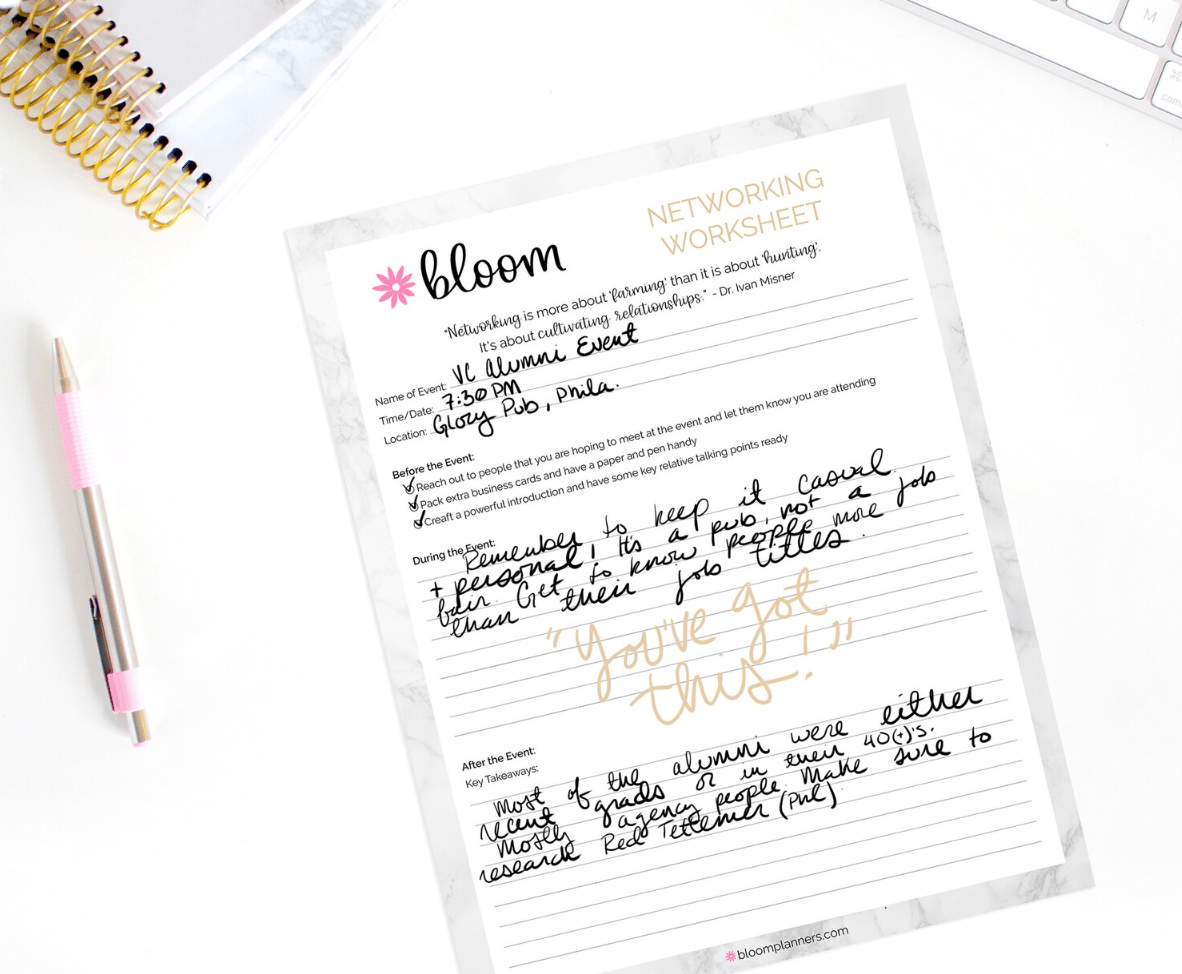 M
⌘
com
bloom
NETWORKING
WORKSHEET
"Networking is more about 'farming' than it is about 'hunting'.
It's about cultivating relationships." - Dr. Ivan Misner
Name of Event: VC Alumni Event
Time/Date: 7:30 PM
Location: Glory Pub, Phila.
Before the Event:
Reach out to people that you are hoping to meet at the event and let them know you are attending
Pack extra business cards and have a paper and pen handy
Creaft a powerful introduction and have some key relative talking points ready
During the Event:
Remember to keep it casual
+ personal, It's a pub, not a job
fair. Get to know people more
than their job titles.
"You've got
this!"
After the Event:
Key Takeaways:
Most of the alumni were either
recent grads or in their 40(+)'s.
Mostly agency people. Make sure to
research Red Tettemer (PHL)
bloomplanners.com